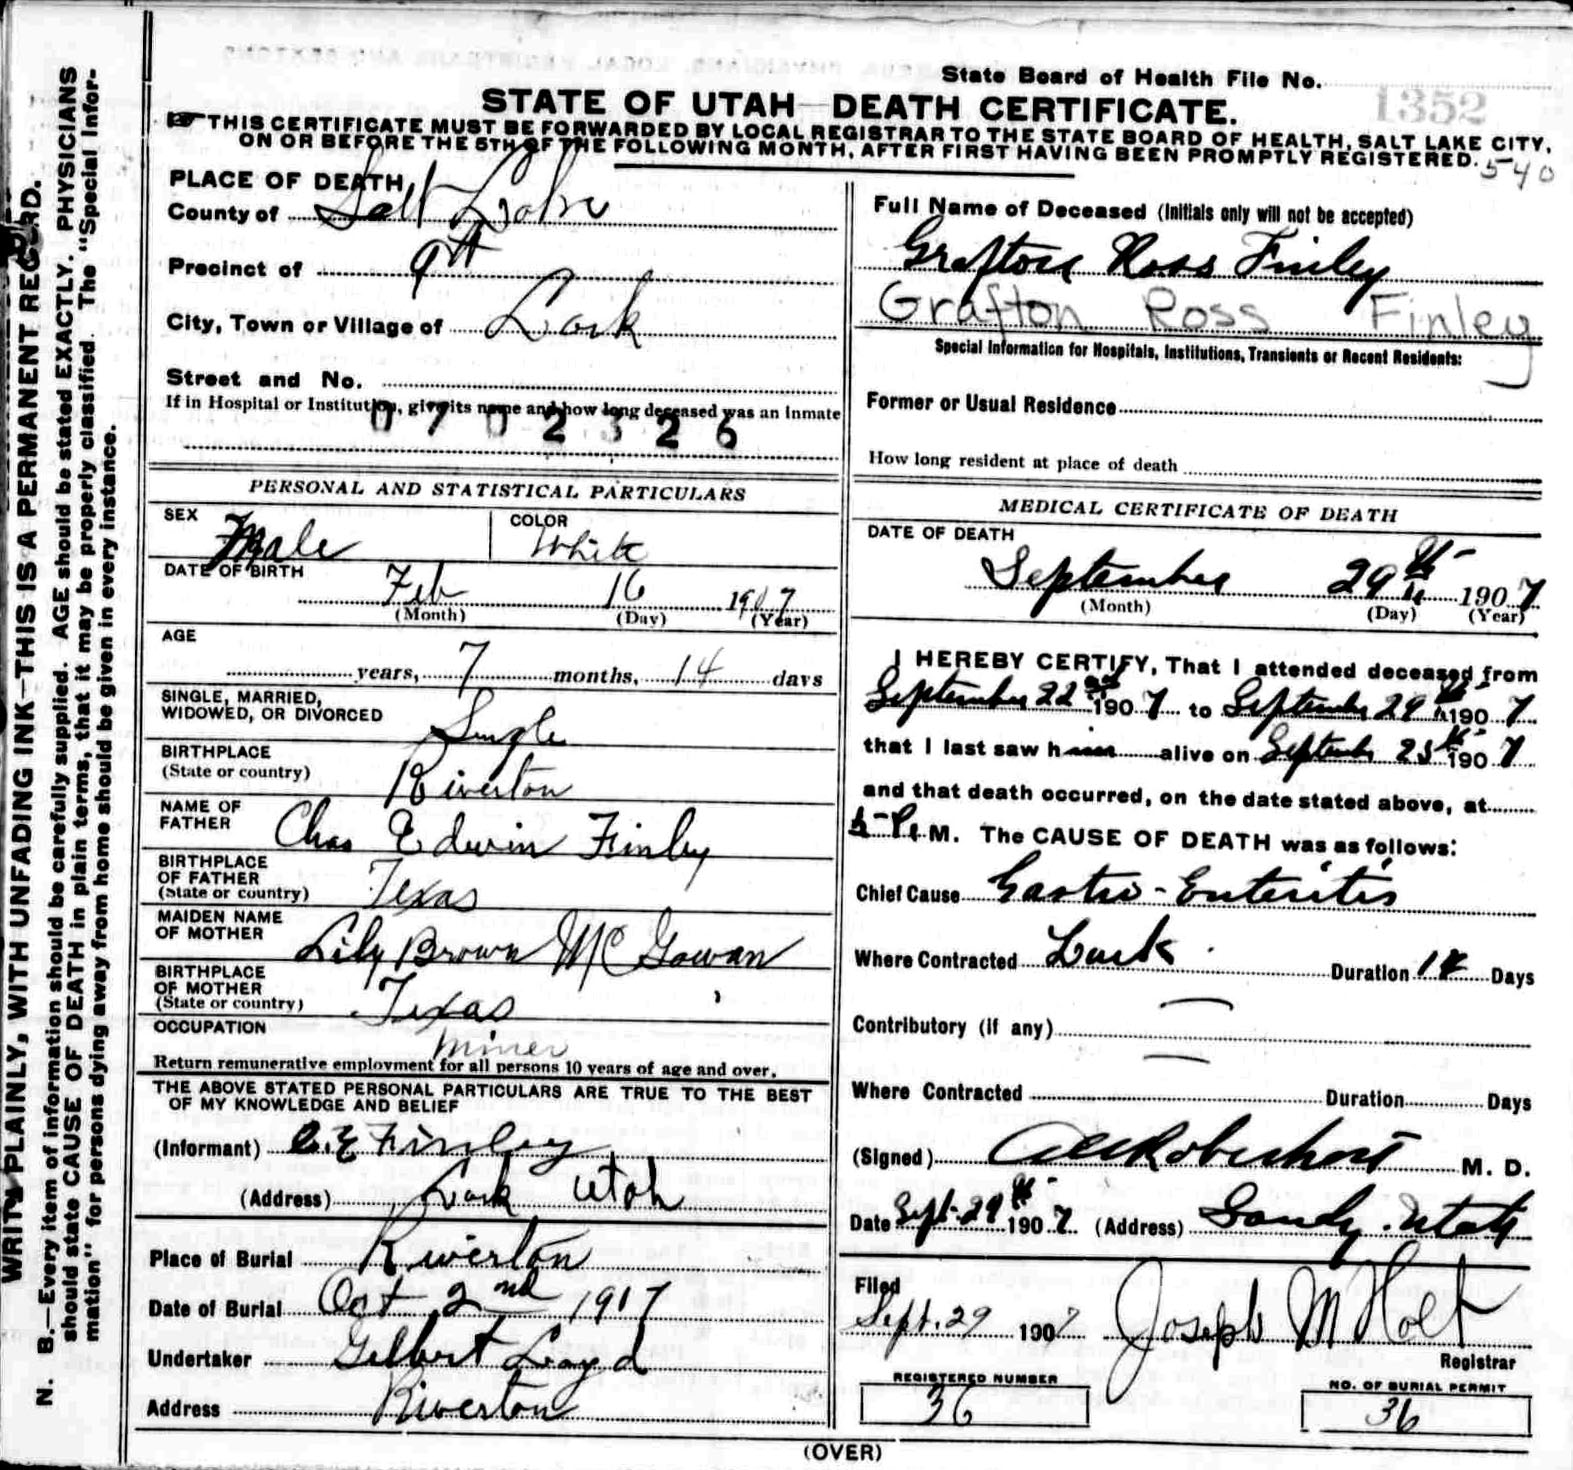 WRITE PLAINLY, WITH UNFADING INK—THIS IS A PERMANENT RECORD.
N. B.—Every item of information should be carefully supplied. AGE should be stated EXACTLY. PHYSICIANS
should state CAUSE OF DEATH in plain terms, that it may be properly classified. The "Special Infor-
mation" for persons dying away from home should be given in every instance.
State Board of Health File No. 1352
STATE OF UTAH—DEATH CERTIFICATE.
THIS CERTIFICATE MUST BE FORWARDED BY LOCAL REGISTRAR TO THE STATE BOARD OF HEALTH, SALT LAKE CITY,
ON OR BEFORE THE 5TH OF THE FOLLOWING MONTH, AFTER FIRST HAVING BEEN PROMPTLY REGISTERED.
540
PLACE OF DEATH
County of Salt Lake
Precinct of 9th
City, Town or Village of Lark
Street and No.
If in Hospital or Institution, give its name and how long deceased was an Inmate
0702326
Full Name of Deceased (Initials only will not be accepted)
Grafton Ross Finley
Grafton Ross Finley
Special Information for Hospitals, Institutions, Transients or Recent Residents:
Former or Usual Residence
How long resident at place of death
PERSONAL AND STATISTICAL PARTICULARS
SEX Male
COLOR White
DATE OF BIRTH
Feb 16 1907
(Month) (Day) (Year)
AGE
years, 7 months, 14 days
SINGLE, MARRIED,
WIDOWED, OR DIVORCED Single
BIRTHPLACE
(State or country) Riverton
NAME OF
FATHER Chas Edwin Finley
BIRTHPLACE
OF FATHER
(State or country) Texas
MAIDEN NAME
OF MOTHER Lily Brown McGowan
BIRTHPLACE
OF MOTHER
(State or country) Texas
OCCUPATION
miner
Return remunerative employment for all persons 10 years of age and over.
THE ABOVE STATED PERSONAL PARTICULARS ARE TRUE TO THE BEST
OF MY KNOWLEDGE AND BELIEF
(Informant) C. E Finley
(Address) Lark Utah
Place of Burial Riverton
Date of Burial Oct 2nd 1917
Undertaker Gilbert Loyd
Address Riverton
MEDICAL CERTIFICATE OF DEATH
DATE OF DEATH
September 29th 1907
(Month) (Day) (Year)
I HEREBY CERTIFY, That I attended deceased from
September 22nd 1907 to September 29th 1907
that I last saw him alive on September 25th 1907
and that death occurred, on the date stated above, at
5 P. M. The CAUSE OF DEATH was as follows:
Chief Cause Gastro-Enteritis
Where Contracted Lark Duration 14 Days
Contributory (if any)
Where Contracted Duration Days
(Signed) M. D.
Date Sept. 29th 1907 (Address) Sandy. Utah
Filed
Sept. 29 1907 Joseph M Holt
Registrar
REGISTERED NUMBER
36
NO. OF BURIAL PERMIT
36
(OVER)